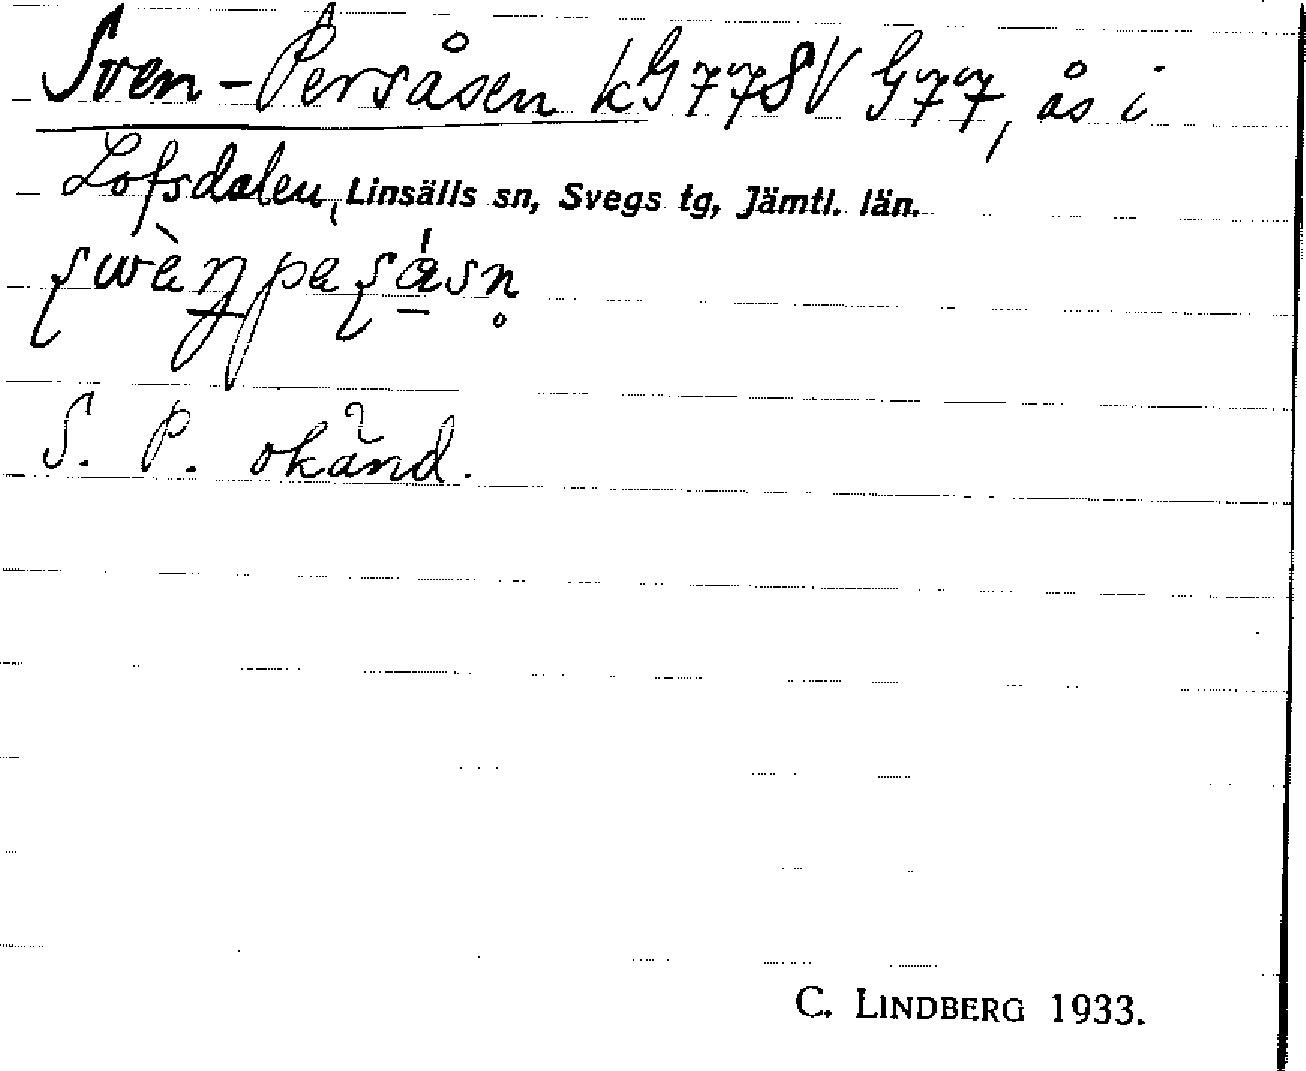 Sven-Persåsen kG77SV G77, ås i
Lofsdalen, Linsälls sn, Svegs tg, Jämtl. län.
S. P. okänd.
C. LINDBERG 1933.